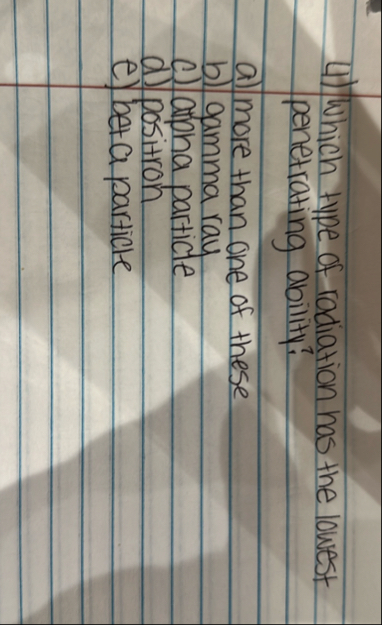 4) Which type of radiation has the lowest
penetrating ability?
a) more than one of these
b) gamma ray
c) alpha particle
d) positron
e) beta particle